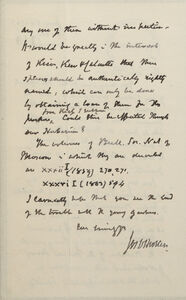 any one of them without inspection.
It would be greatly in the interests
of Kew, Kew & Calcutta that these
species should be authentically rightly
named, which can only be done
by obtaining a loan of them for the
purpose. Could this be effected through
our Herbarium?
The volumes of Bull. Soc. Nat. of
Moscow in which they are described
are XXXII I (1859) 270, 271,
XXXVI I (1863) 594
I earnestly hope that you see the end
of the trouble with
Ever sincerely yrs
Jos D Hooker